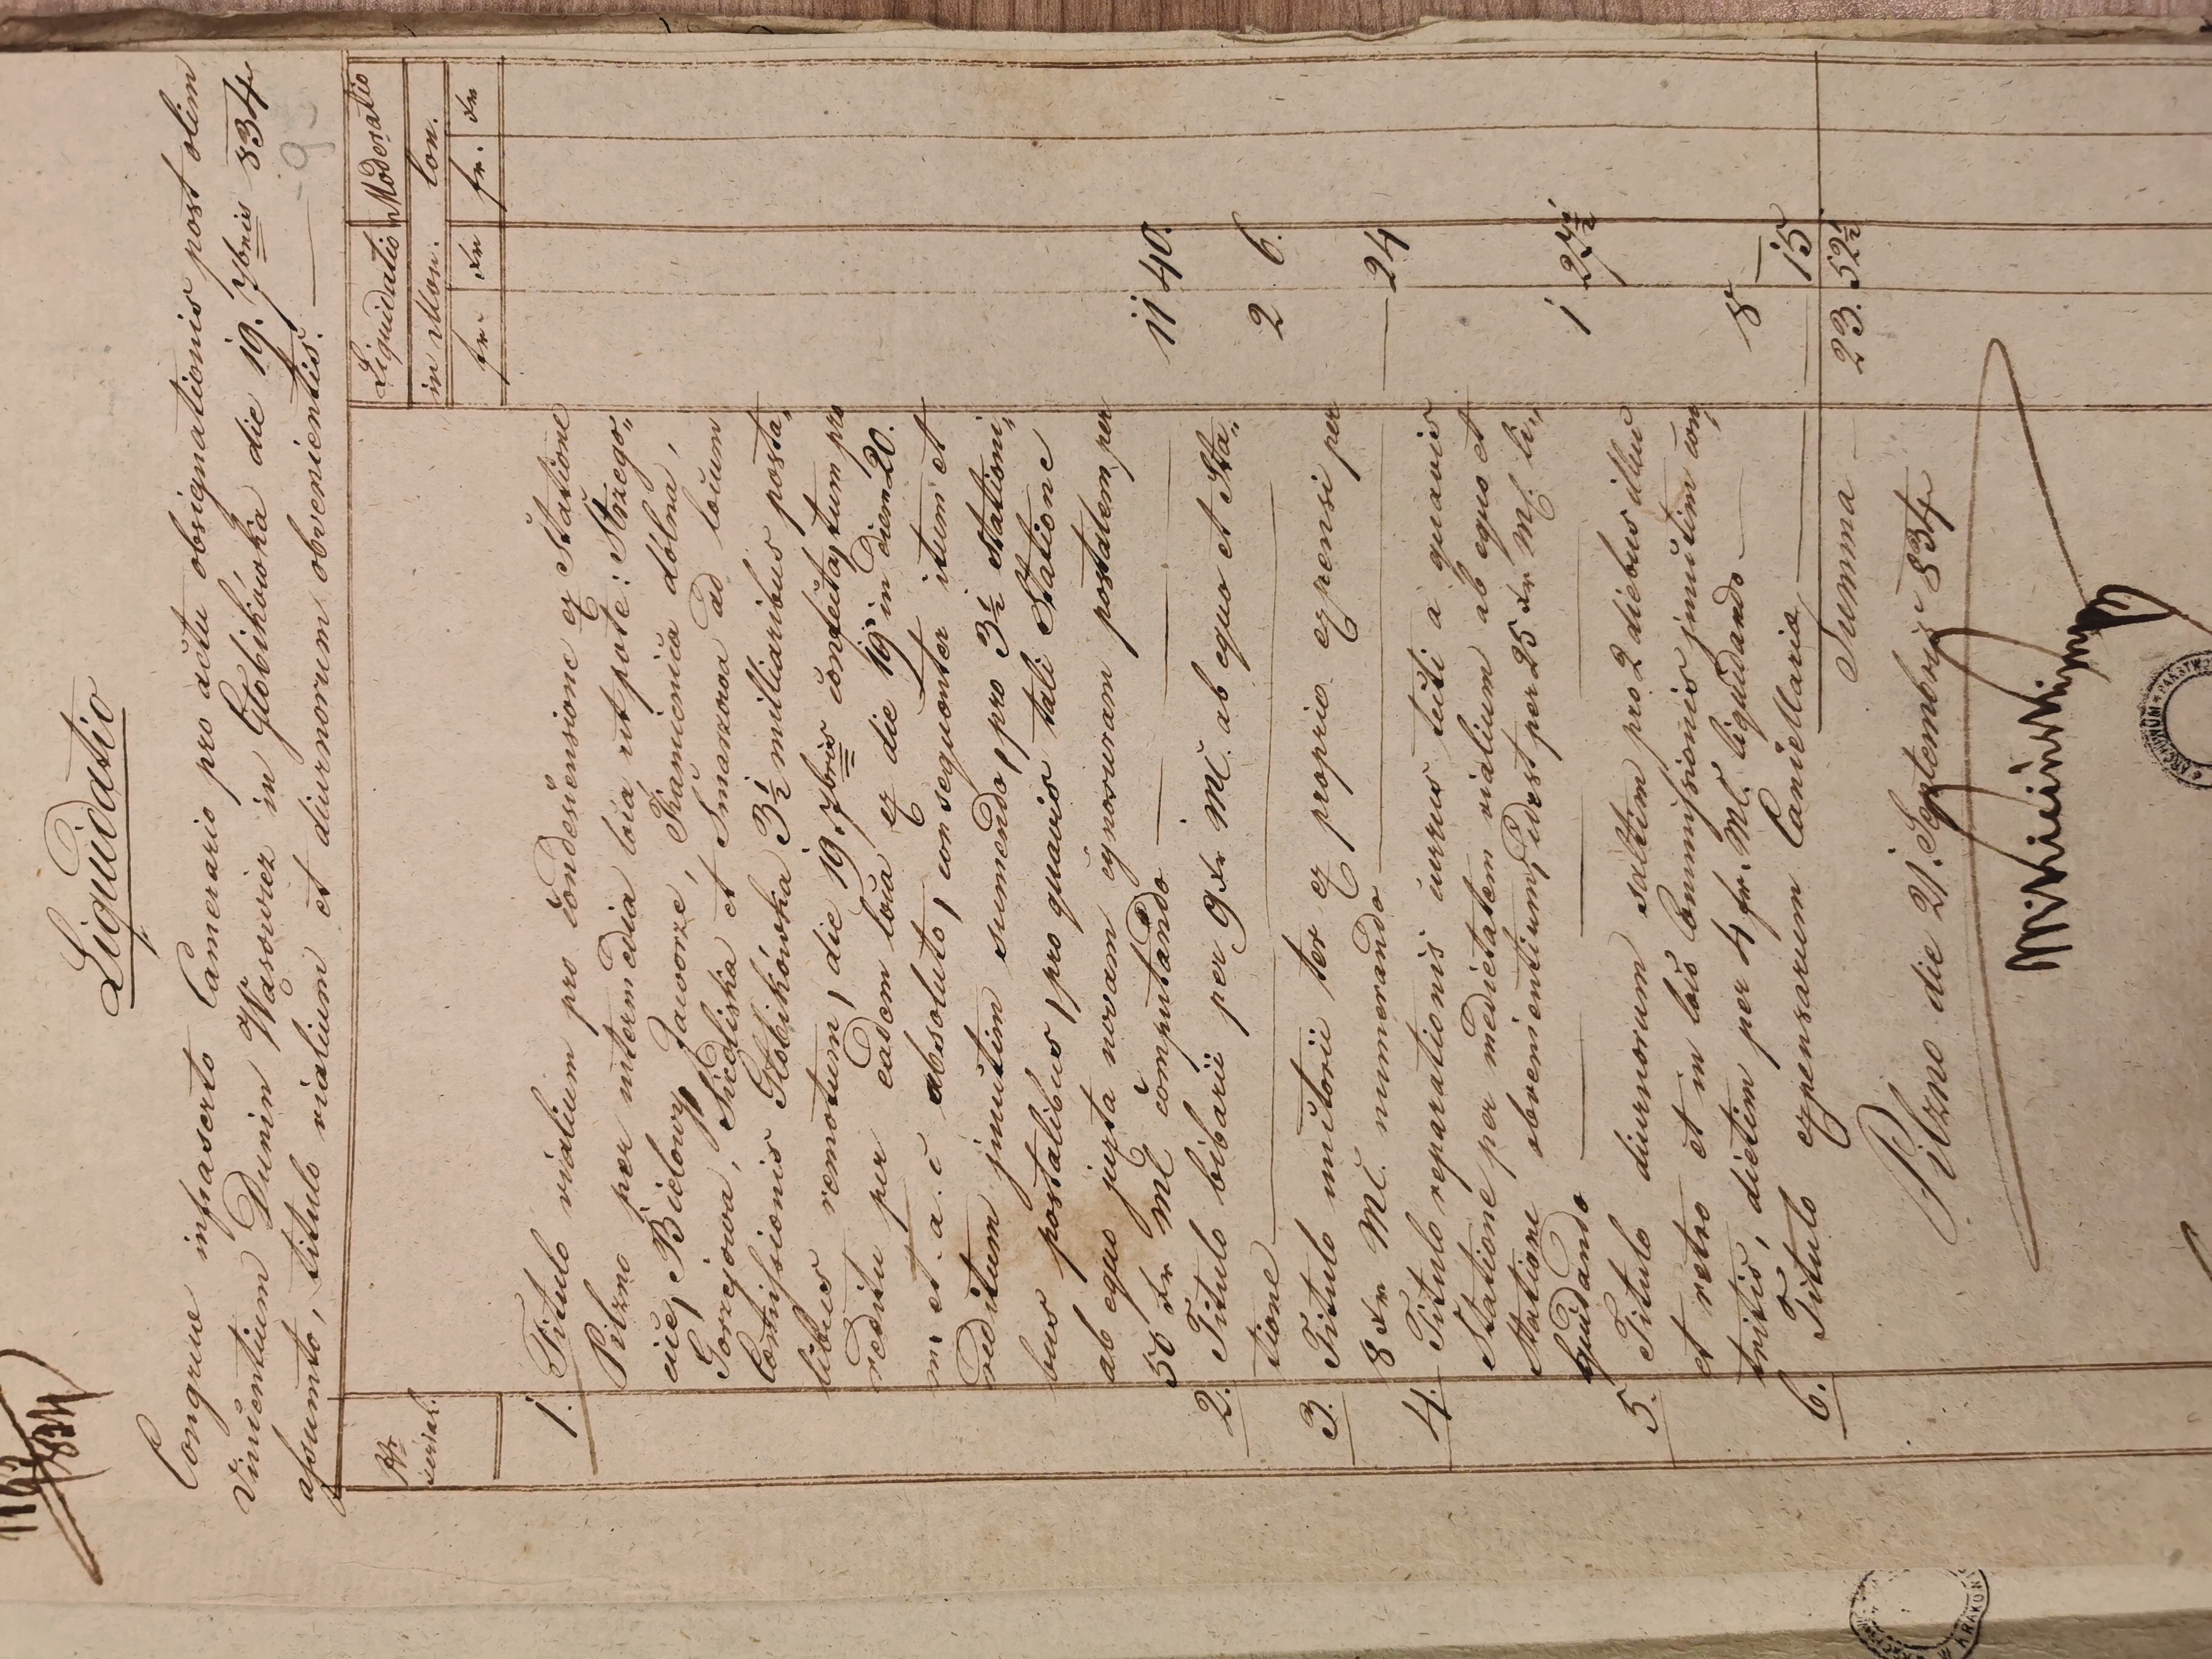 Liquidatio
Congrue infrascripto Camerario pro actu obsignationis post olim
Vincentium Dunin Wąsowicz in Głobikówka die 19. 7bris 834
assumto, titulo vialium et diurnorum obvenientis.
Nr
serial.
Liquidatio
Moderatio
in Mon. Con.
fr. xr
fr. xr
1. Titulo vialium pro condescensione ex Statione
Pilzno per intermedia loca ut pote: Strzego„
cice, Bielowy, Jaworze, Kamienica dolna,
Gorzejowa, Siedliska et Smarzowa ad locum
Commissionis Głobikówka 3½ milliaribus posta„
libus remotum, die 19. 7bris confectaytum pro
reditu per eadem loca ex die 19 in diem 20.
m. et. a. c absoluto, consequenter itum et
reditum junctim sumendo, pro 3½ stationi„
bus postalibus, pro quavis tali Statione
ab equo juxta novam cynosuram postalem per
50 xr Mč computando 11 40.
2. Titulo bibarii per 9 xr Mč. ab equo et Sta„
tione 2 6.
3. Titulo unctorii ter ex proprio expensi per
8 xr Mč. numerando — 24
4. Titulo reparationis currus tecti a quavis
Statione per medietatem vialium ab equo et
Statione obvenientium, id est per 25 xr Mč. li„
quidando 1 27½
5. Titulo diurnorum saltim pro 2 diebus illuc
et retro et in loco Commissionis junctim con„
tritis, dietim per 4 fr. Mč. liquidando 8 —
6. Titulo expensarum Cancellariae — 15
Summa 23. 52½
Pilzno die 21. Septembris 834
ARCHIWUM PAŃSTW
KRAKOW